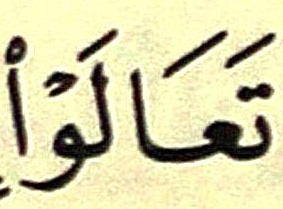 تَعَالَوْاْ